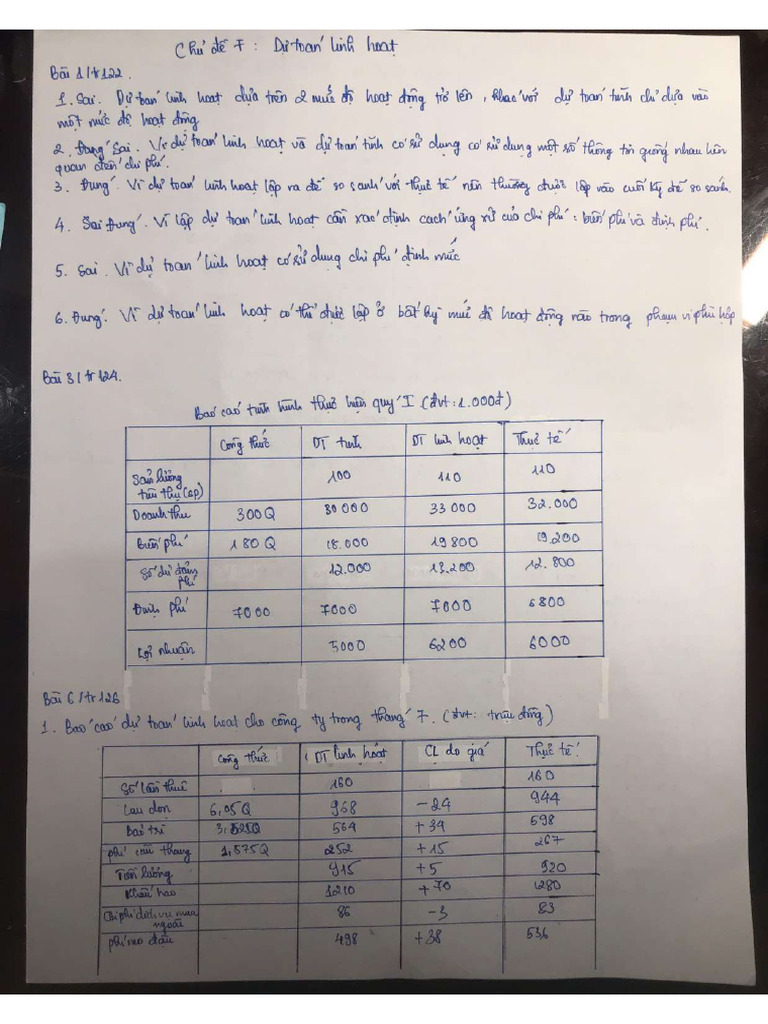 Chủ đề 7: Dự toán linh hoạt
Bài 1/tr122.
1. Sai. Dự toán linh hoạt dựa trên 2 mức độ hoạt động trở lên, khác với dự toán tĩnh chỉ dựa vào
một mức độ hoạt động
2. Đúng Sai. Vì dự toán linh hoạt và dự toán tĩnh có sử dụng có sử dụng một số thông tin giống nhau liên
quan đến chi phí.
3. Đúng. Vì dự toán linh hoạt lập ra để so sánh với thực tế nên thường được lập vào cuối kỳ để so sánh.
4. Sai Đúng. Vì lập dự toán linh hoạt cần xác định cách ứng xử của chi phí: biến phí và định phí.
5. Sai. Vì dự toán linh hoạt có sử dụng chi phí định mức
6. Đúng. Vì dự toán linh hoạt có thể được lập ở bất kỳ mức độ hoạt động nào trong phạm vi phù hợp
Bài 3/tr124.
Báo cáo tình hình thực hiện quý I (đvt: 1.000đ)
Công thức DT tĩnh DT linh hoạt Thực tế
Sản lượng tiêu thụ (sp) 100 110 110
Doanh thu 300Q 30 000 33 000 32.000
Biến phí 180Q 18.000 19 800 19.200
Số dư đảm phí 12.000 13.200 12.800
Định phí 7000 7000 7000 6800
Lợi nhuận 5000 6200 6000
Bài 6/tr126
1. Báo cáo dự toán linh hoạt cho công ty trong tháng 7. (đvt: triệu đồng)
Công thức DT linh hoạt CL do giá Thực tế
Số lần thuê 160 160
Lau dọn 6,05Q 968 -24 944
Bảo trì 3,525Q 564 +34 598
Phí cầu thang 1,575Q 252 +15 267
Tiền lương 915 +5 920
Khấu hao 1210 +70 1280
Chi phí dịch vụ mua ngoài 86 -3 83
phí 498 +38 536